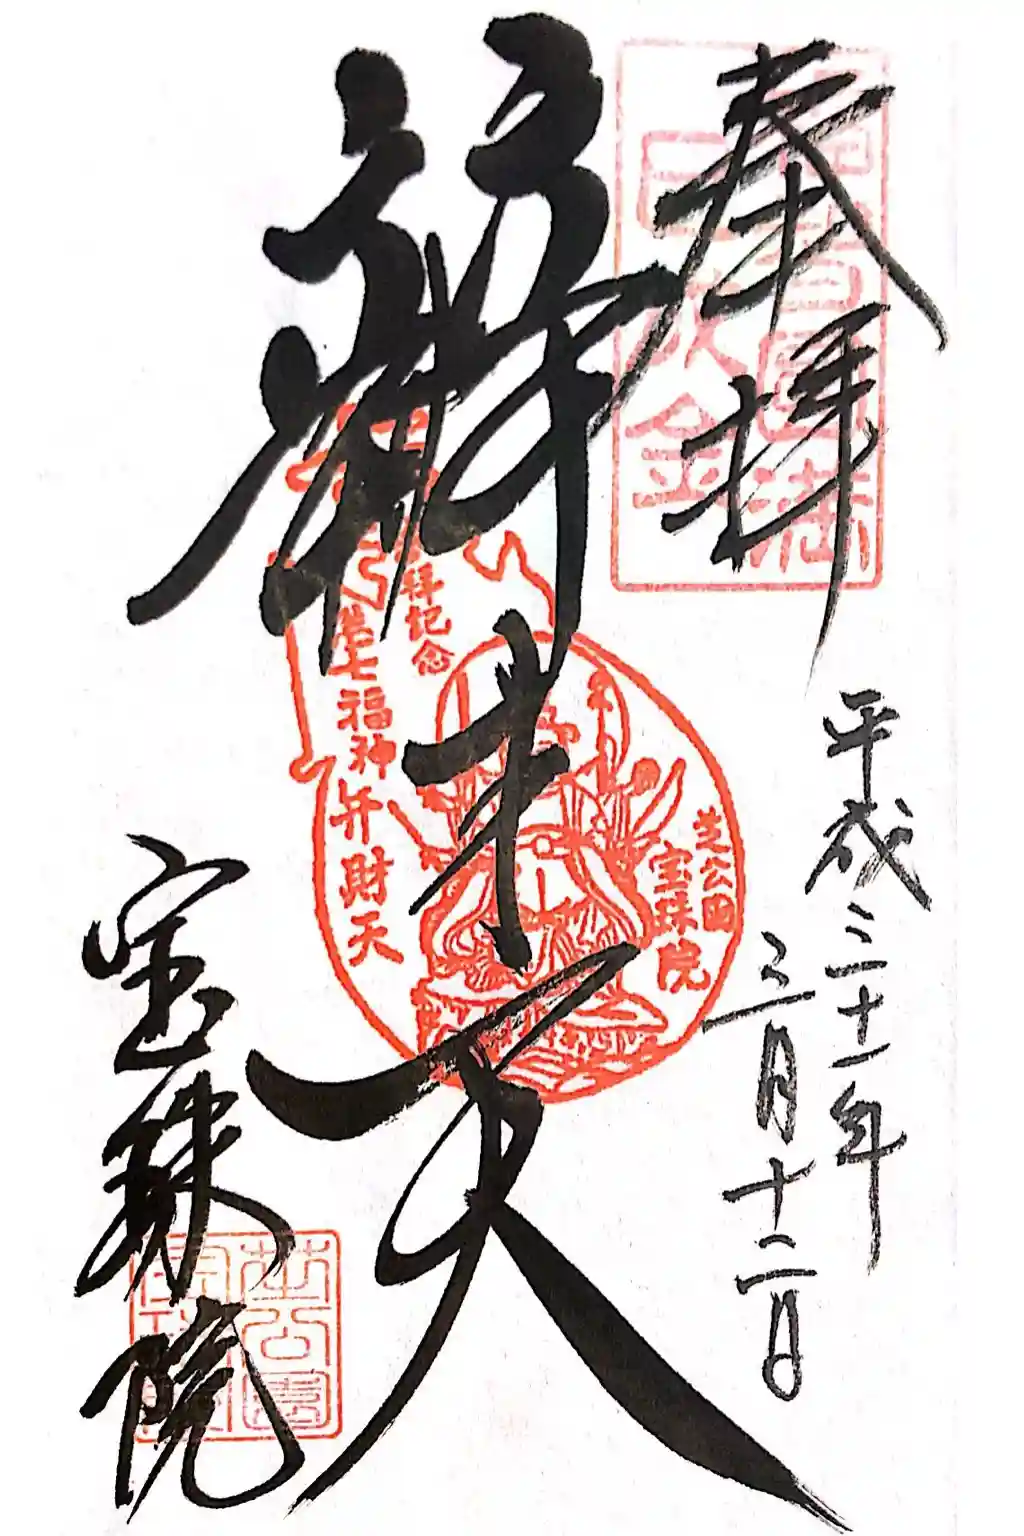 奉拝
平成三十一年
三月十二日
辨才天
拝記念
第七福神
弁財天
芝公園
宝珠院
宝珠院
芝公園